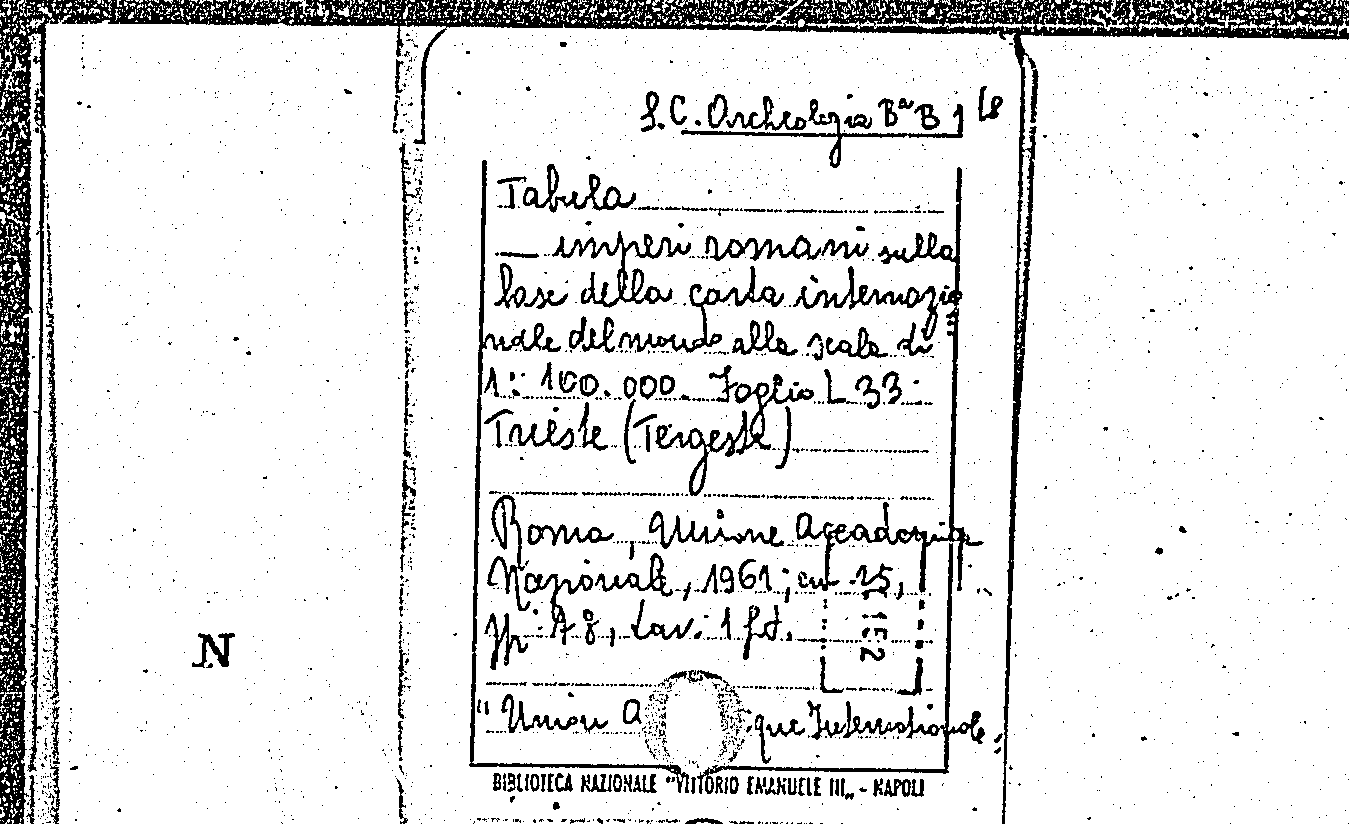 S. C. Archeologia Bª B 1 / 8
Tabula
— imperi romani sulla
base della carta internazio
nale del mondo alla scala di
1: 100.000. Foglio L 33.
Trieste (Tergeste)
Roma, Unione Accademica
Nazionale, 1961; cm 25,
pp. 78, tav. 1 f.t.
152
N
"Union A que Internationale„
BIBLIOTECA NAZIONALE "VITTORIO EMANUELE III„ - NAPOLI